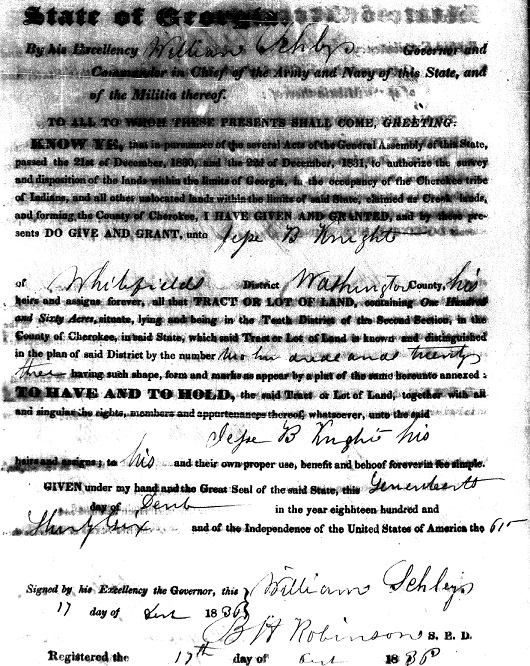 State of Georgia.
By his Excellency William Schley Governor and
Commander in Chief of the Army and Navy of this State, and
of the Militia thereof.
TO ALL TO WHOM THESE PRESENTS SHALL COME, GREETING.
KNOW YE, that in pursuance of the several Acts of the General Assembly of this State,
passed the 21st of December, 1830, and the 22d of December, 1831, to authorize the survey
and disposition of the lands within the limits of Georgia, in the occupancy of the Cherokee tribe
of Indians, and all other unlocated lands within the limits of said State, claimed as Creek lands,
and forming the County of Cherokee, I HAVE GIVEN AND GRANTED, and by these pre-
sents DO GIVE AND GRANT, unto Jesse B Knight
of Whitfields District Washington County, his
heirs and assigns forever, all that TRACT OR LOT OF LAND, containing One Hundred
and Sixty Acres, situate, lying and being in the Tenth District of the Second Section, in the
County of Cherokee, in said State, which said Tract or Lot of Land is known and distinguished
in the plan of said District by the number two hundred and twenty
three having such shape, form and marks as appear by a plat of the same hereunto annexed:
TO HAVE AND TO HOLD, the said Tract or Lot of Land, together with all
and singular the rights, members and appurtenances thereof, whatsoever, unto the said
Jesse B Knight his
heirs and assigns; to his and their own proper use, benefit and behoof forever in fee simple.
GIVEN under my hand and the Great Seal of the said State, this
day of in the year eighteen hundred and
Thirty six and of the Independence of the United States of America the 61
Signed by his Excellency the Governor, this William Schley
17 day of 1836
B H Robinson S. E. D.
Registered the 17th day of 1836